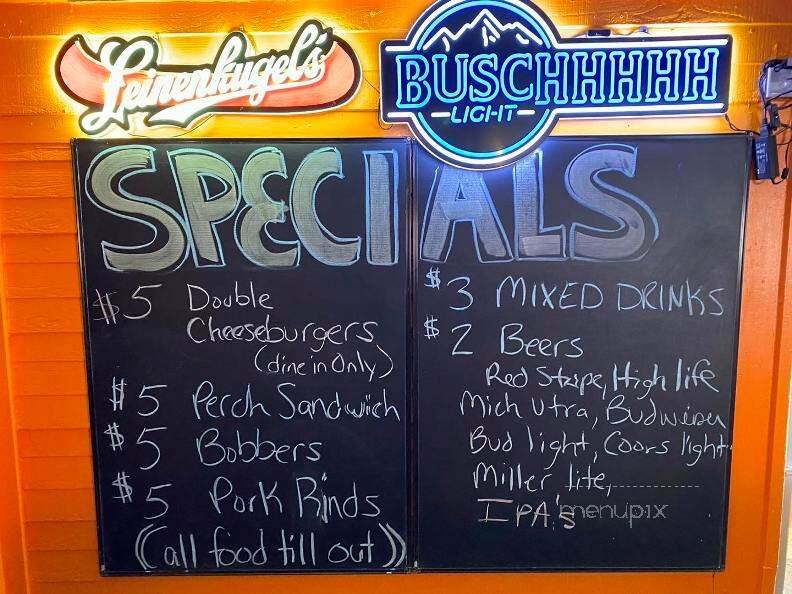 Leinenkugel's
BUSCHHHHH
LIGHT
SPECIALS
$5 Double
Cheeseburgers
(dine in Only)
$5 Perch Sandwich
$5 Bobbers
$5 Pork Rinds
(all food till out)
$3 MIXED DRINKS
$2 Beers
Red Stripe, High life
Mich Utra, Budweiser
Bud light, Coors light
Miller lite,
IPA's
menupix